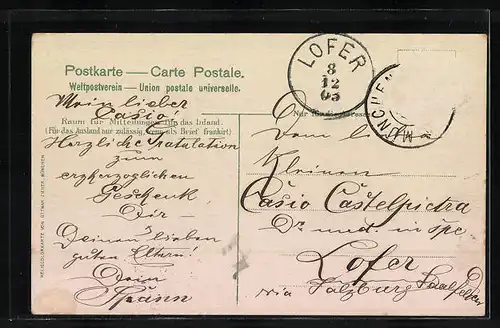 Postkarte — Carte Postale.
Weltpostverein — Union postale universelle.
LOFER
8
12
05
MÜNCHEN
Mein lieber
Casio
Raum für Mitteilungen für das Inland.
(Für das Ausland nur zulässig, wenn als Brief frankiert)
Herzliche Gratulation
zum
erzherzoglichen
Geschenk
Dir —
Deinen lieben
guten Eltern!
Dein
Spänn
Nur für die Adresse
Dem
Kleinen
Casio Castelpietra
Dr und in spe
Lofer
via Salzburg Saalfelden